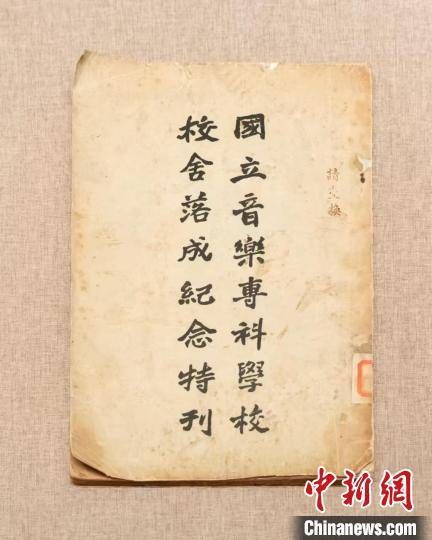 國立音樂專科學校
校舍落成紀念特刊
中新網
Chinanews.com